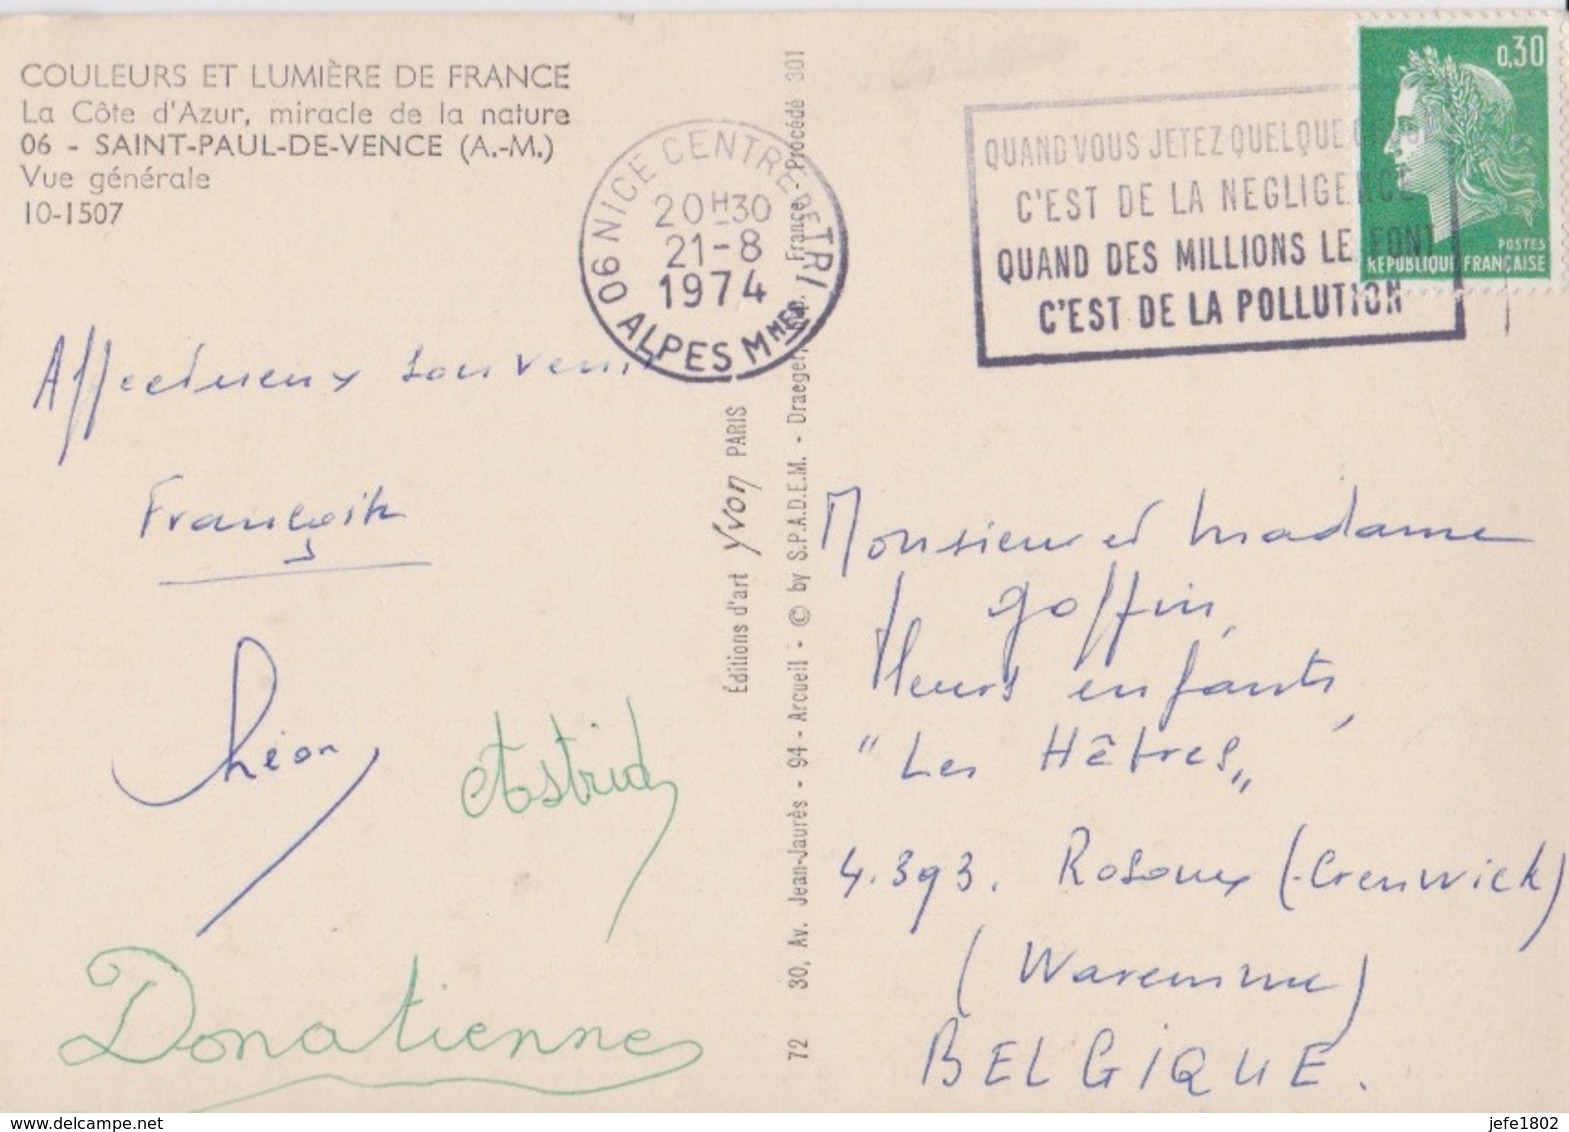 COULEURS ET LUMIÈRE DE FRANCE
La Côte d'Azur, miracle de la nature
06 - SAINT-PAUL-DE-VENCE (A.-M.)
Vue générale
10-1507
06 NICE CENTRE DE TRI
20H30
21-8
1974
ALPES MMES
QUAND VOUS JETEZ QUELQUE
C'EST DE LA NEGLIGENCE
QUAND DES MILLIONS LE FONT
C'EST DE LA POLLUTION
0,30
POSTES
REPUBLIQUE FRANÇAISE
Affectueux souvenir
Léon
Astrid
Donatienne
Éditions d'art Yvon PARIS
72 30, Av. Jean-Jaurès - 94 - Arcueil - © by S.P.A.D.E.M. - Draeger, Imp. France - Procédé 301
Monsieur et Madame
Goffin,
leurs enfants,
"Les Hêtres"
4.393. Rosoux (-Crenwick)
(Waremme)
BELGIQUE.
delcampe.net
jefe1802